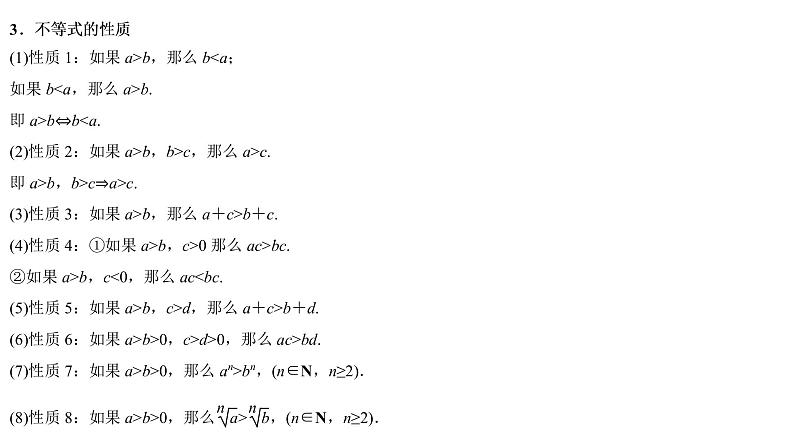 3．不等式的性质
(1)性质 1：如果 a>b，那么 b<a；
如果 b<a，那么 a>b.
即 a>b⇔b<a.
(2)性质 2：如果 a>b，b>c，那么 a>c.
即 a>b，b>c⇒a>c.
(3)性质 3：如果 a>b，那么 a＋c>b＋c.
(4)性质 4：①如果 a>b，c>0 那么 ac>bc.
②如果 a>b，c<0，那么 ac<bc.
(5)性质 5：如果 a>b，c>d，那么 a＋c>b＋d.
(6)性质 6：如果 a>b>0，c>d>0，那么 ac>bd.
(7)性质 7：如果 a>b>0，那么 aⁿ>bⁿ，(n∈N，n≥2)．
(8)性质 8：如果 a>b>0，那么ⁿ√a>ⁿ√b，(n∈N，n≥2)．